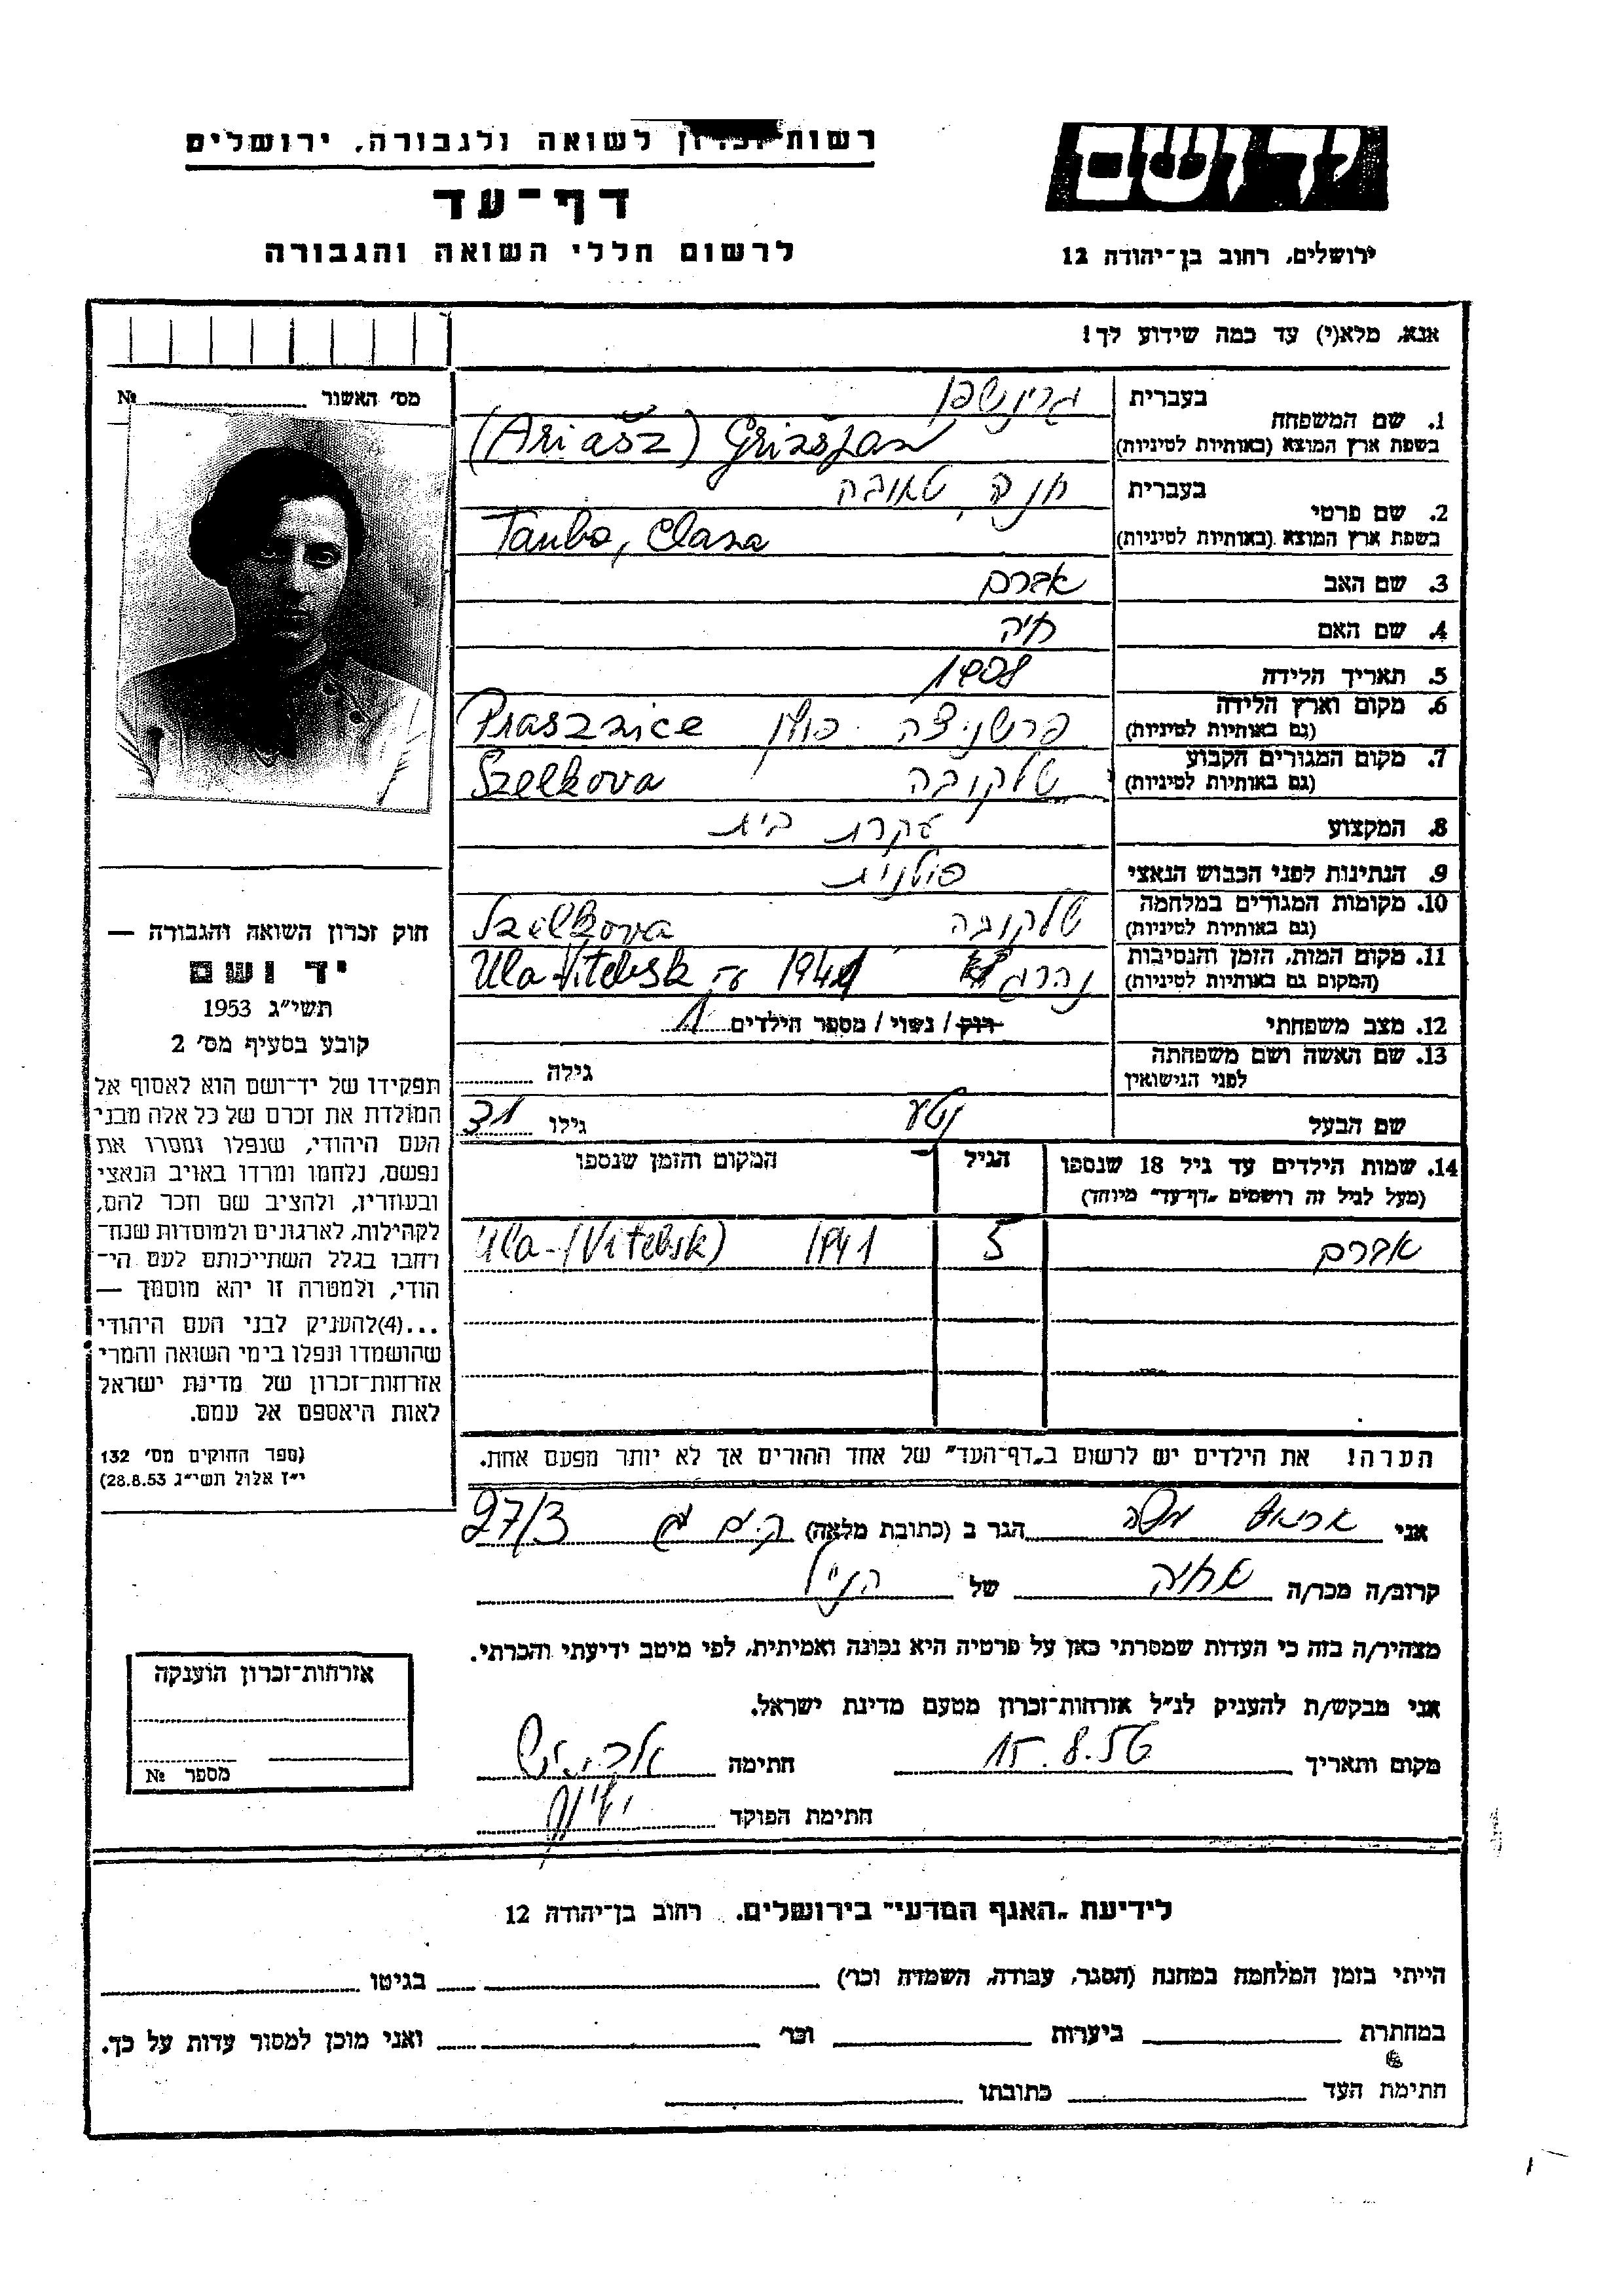 רשות זכרון לשואה ולגבורה, ירושלים
דף-עד
לרשום חללי השואה והגבורה
יד ושם
ירושלים, רחוב בן-יהודה 12
אנא, מלא(י) עד כמה שידוע לך!
מס' האשור №
1. שם המשפחה
בעברית גרינשפן
בשפת ארץ המוצא (באותיות לטיניות) (Ariasz)
2. שם פרטי
בעברית חנה, טאובה
בשפת ארץ המוצא (באותיות לטיניות) Tauba,
3. שם האב אברם
4. שם האם חיה
5. תאריך הלידה 1908
6. מקום וארץ הלידה פרשניצה פולין Prasznice
(גם באותיות לטיניות)
7. מקום המגורים הקבוע שלקובה Szelkova
(גם באותיות לטיניות)
8. המקצוע עקרת בית
9. הנתינות לפני הכבוש הנאצי פולנית
10. מקומות המגורים במלחמה שלקובה Szelkova
(גם באותיות לטיניות)
11. מקום המות, הזמן והנסיבות נהרגה 1941 Ula Vitebsk
(המקום גם באותיות לטיניות)
12. מצב משפחתי רוק / נשוי / מספר הילדים 1
13. שם האשה ושם משפחתה גילה
לפני הנישואין
שם הבעל נטע גילו 31
14. שמות הילדים עד גיל 18 שנספו הגיל המקום והזמן שנספו
(מעל לגיל זה רושמים "דף-עד" מיוחד)
אברם 5 1941 Ula-(Vitebsk)
הערה! את הילדים יש לרשום ב"דף-העד" של אחד ההורים אך לא יותר מפעם אחת.
חוק זכרון השואה והגבורה —
יד ושם
תשי"ג 1953
קובע בסעיף מס' 2
תפקידו של יד-ושם הוא לאסוף אל
המולדת את זכרם של כל אלה מבני
העם היהודי, שנפלו ומסרו את
נפשם, נלחמו ומרדו באויב הנאצי
ובעוזריו, ולהציב שם וזכר להם,
לקהילות, לארגונים ולמוסדות שנח-
רבו בגלל השתייכותם לעם הי-
הודי, ולמטרה זו יהא מוסמך —
...(4)להעניק לבני העם היהודי
שהושמדו ונפלו בימי השואה והמרי
אזרחות-זכרון של מדינת ישראל
לאות היאספם אל עמם.
(ספר החוקים מס' 132
י"ז אלול תשי"ג 28.8.53)
אני משה הגר ב (כתובת מלאה) 27/3
קרוב/ה מכר/ה של הנ"ל
מצהיר/ה בזה כי העדות שמסרתי כאן על פרטיה היא נכונה ואמיתית, לפי מיטב ידיעתי והכרתי.
אני מבקש/ת להעניק לנ"ל אזרחות-זכרון מטעם מדינת ישראל.
מקום ותאריך 15.8.56 חתימה
חתימת הפוקד
אזרחות-זכרון הוענקה
מספר №
לידיעת "האגף המדעי" בירושלים. רחוב בן-יהודה 12
הייתי בזמן המלחמה במחנה (הסגר, עבודה, השמדה וכו') בגיטו
במחתרת ביערות וכו' ואני מוכן למסור עדות על כך.
חתימת העד כתובתו